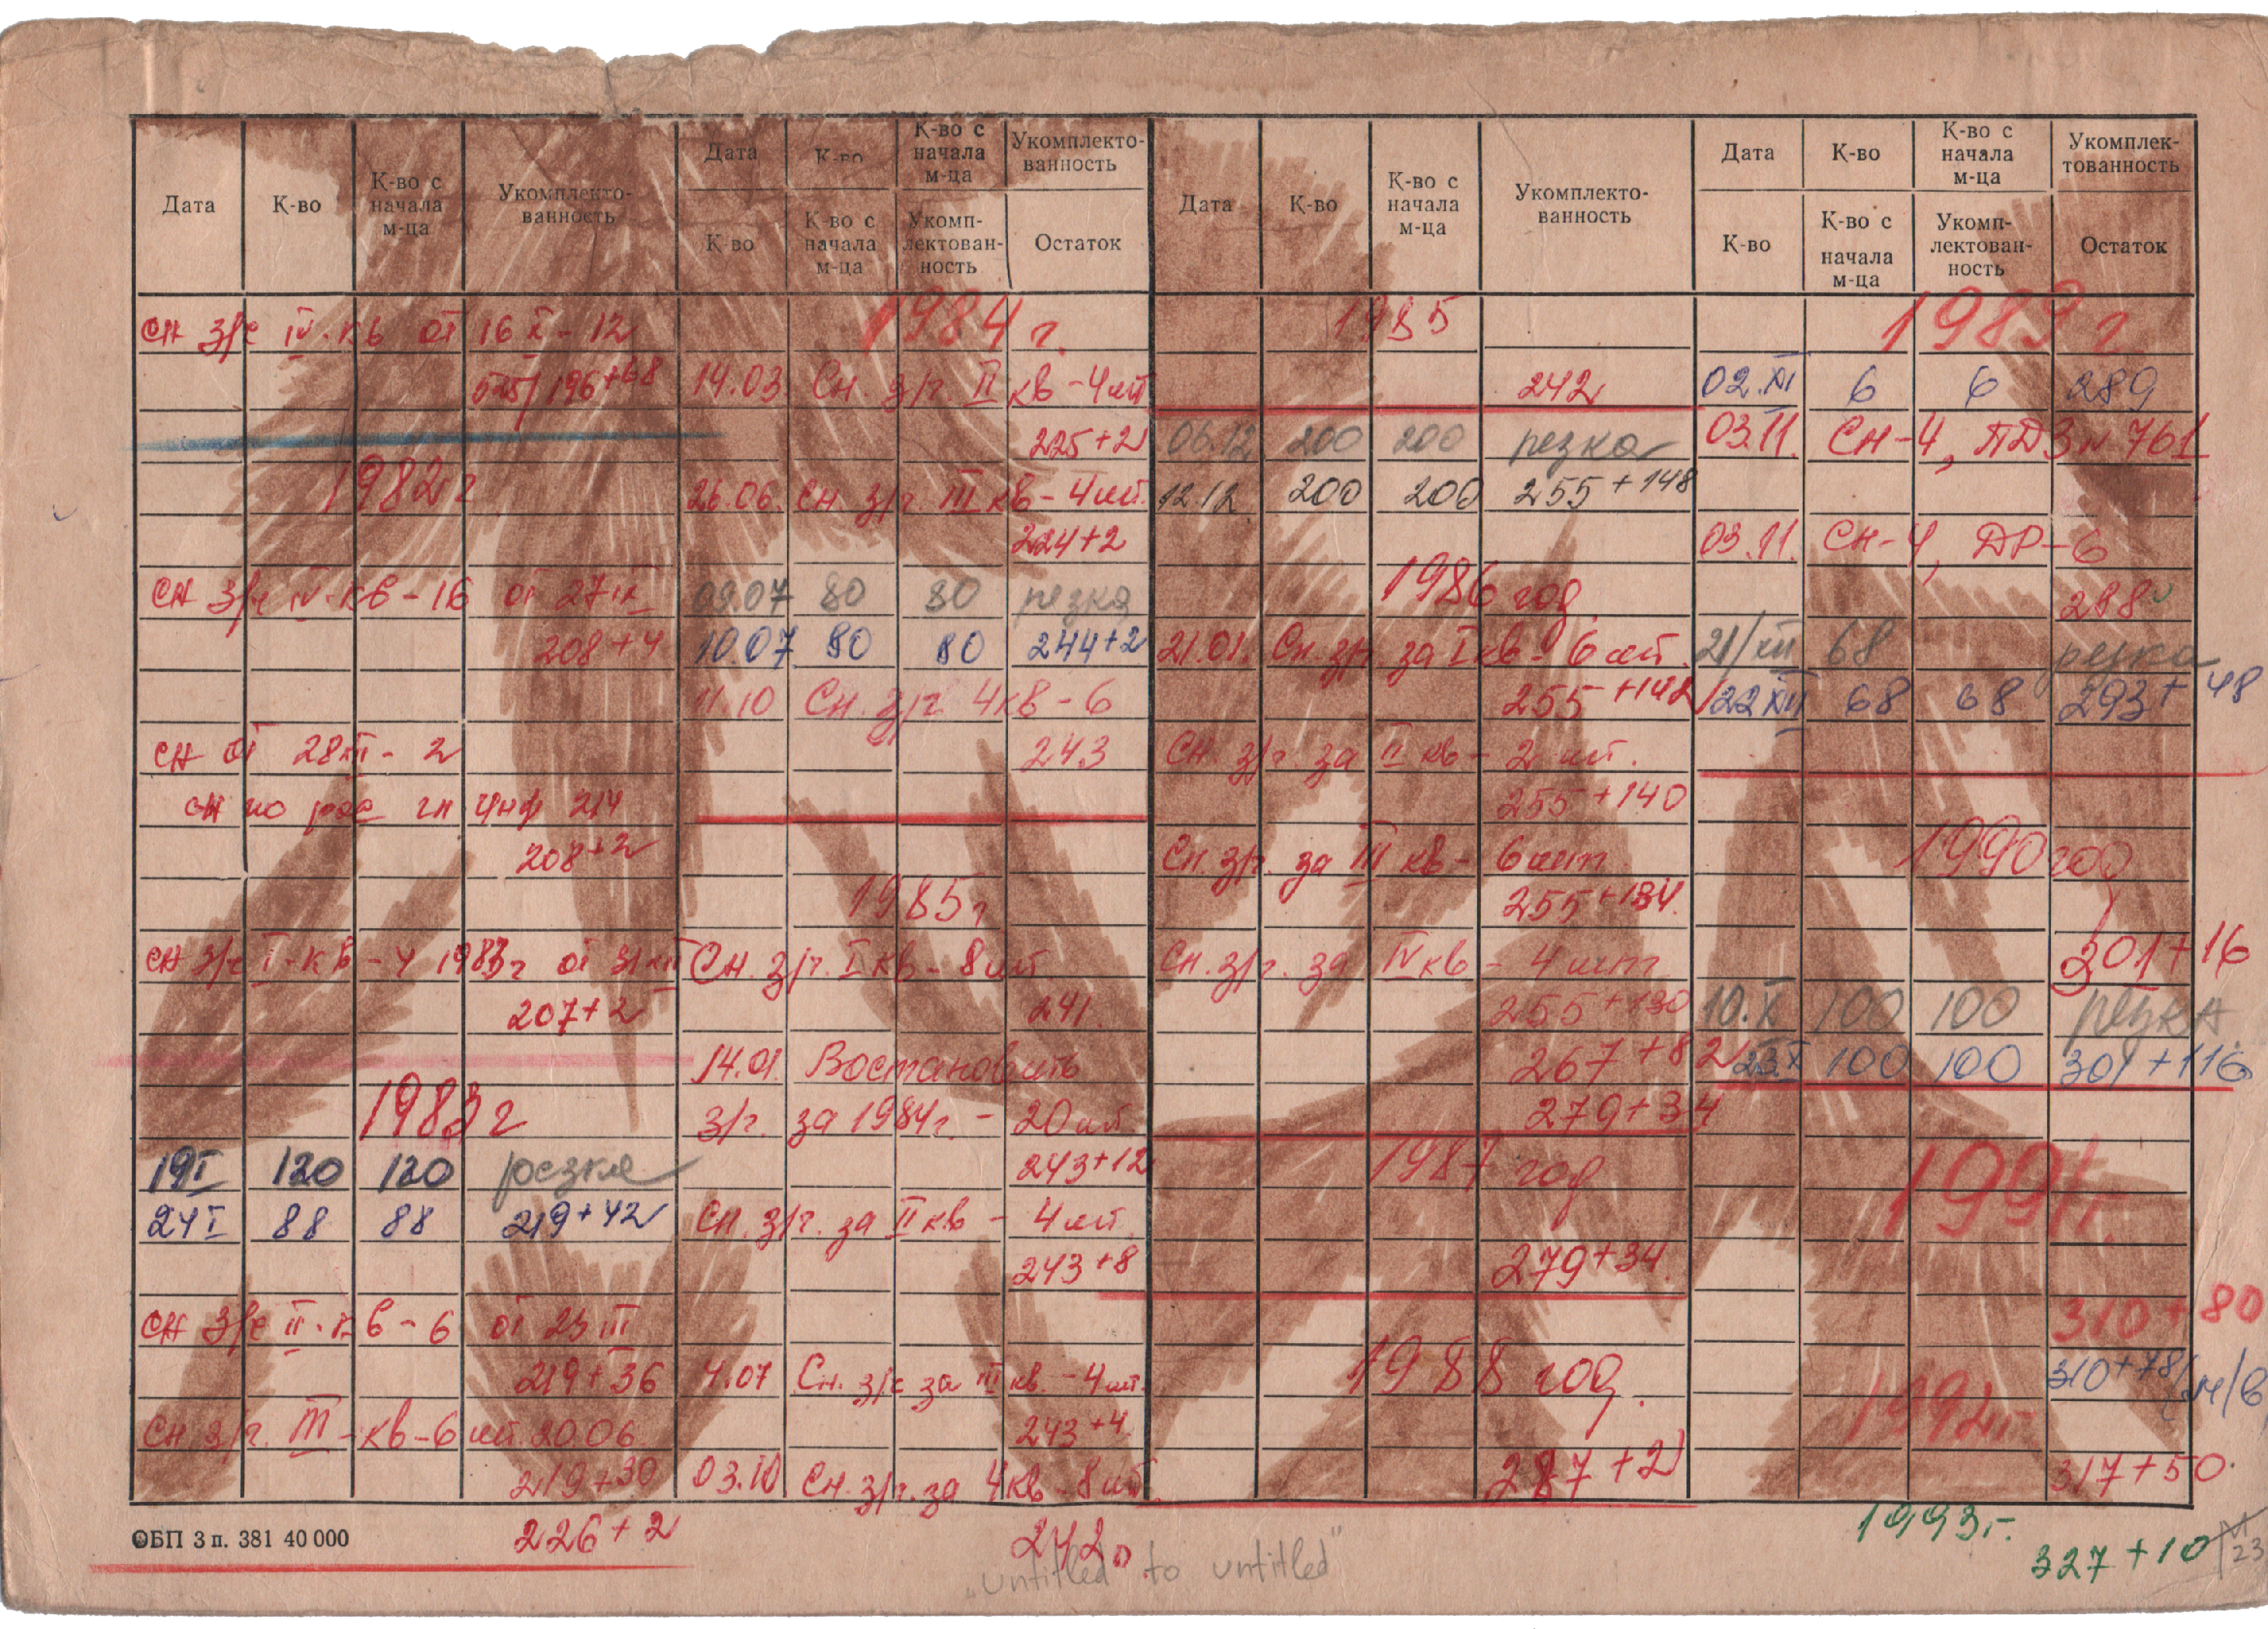 Дата К-во К-во с начала м-ца Укомплекто-ванность
Дата К-во К-во с начала м-ца Укомплекто-ванность
К-во К-во с начала м-ца Укомп-лектован-ность Остаток
Дата К-во К-во с начала м-ца Укомплекто-ванность
Дата К-во К-во с начала м-ца Укомплек-тованность
К-во К-во с начала м-ца Укомп-лектован-ность Остаток
сн з/с IV-кв от 16 X - 12
196+68
1982г
сн з/г IV-кв-16 от 27 IX
208+4
сн от 28 XII - 2
сн по рас гл инф 214
208+2
сн з/с I-кв-4 1983г от 31 XII
207+2
1983г
19 I 120 120 резка
24 I 88 88 219+42
сн з/с II-кв-6 от 23 III
219+36
Сн з/г. III-кв-6 шт. 20 06
219+30
226+2
ОБП З п. 381 40 000
1984 г.
14.03 Сн. з/г. II кв-4шт
225+2
26.06. Сн. з/г. III кв-4шт.
224+2
09.07 80 80 резка
10.07 80 80 244+2
11.10 Сн. з/г 4кв-6
243
1985г
Сн. з/г. I кв-8шт
241.
14.01. Востановить
з/г. за 1984г. - 20шт
243+12
Сн. з/г. за II кв - 4шт
243+8
4.07 Сн. з/с за III кв. -4шт.
243+4
03.10 Сн. з/г. за 4кв-8шт.
242
1985
242
06.12 200 200 резка
12.12 200 200 255+148
1986 год
21.01. Сн. з/г за I кв-6шт.
255+142
Сн. з/г. за II кв - 2шт.
255+140
Сн. з/г. за III кв - 6шт
255+134.
Сн. з/г. за IV кв - 4шт
255+130
267+82
279+34
1987 год
279+34.
1988 год.
287+2
1989 г
02.XI 6 6 289
03.11. Сн-4, ПДЗ н 761
03.11. Сн-4, ДР-6
288
21/XII 68 резка
22 XII 68 68 293+48
1990 год
301+16
10.X 100 100 резка
23.X 100 100 301+116
1991г.
310+80
310+78/
1992г
317+50.
1993г.
327+10
23
„untitled" to untitled"